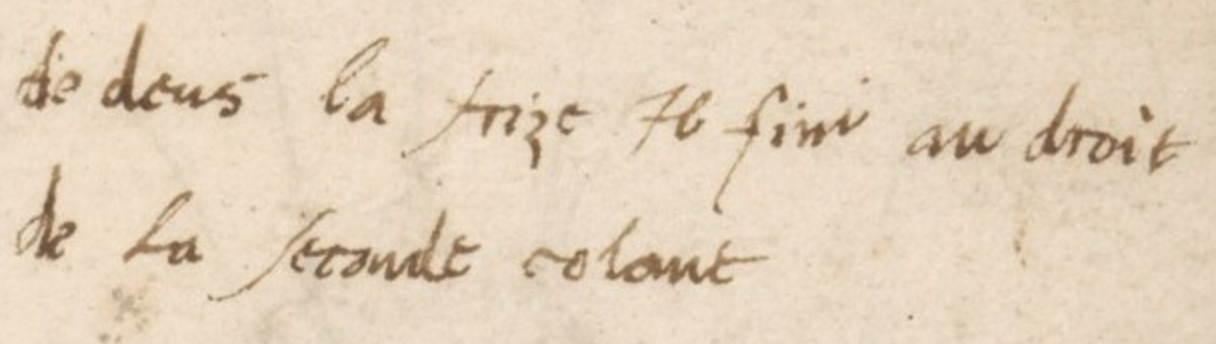 de deus la frize Il fini au droit
de La seconde colant